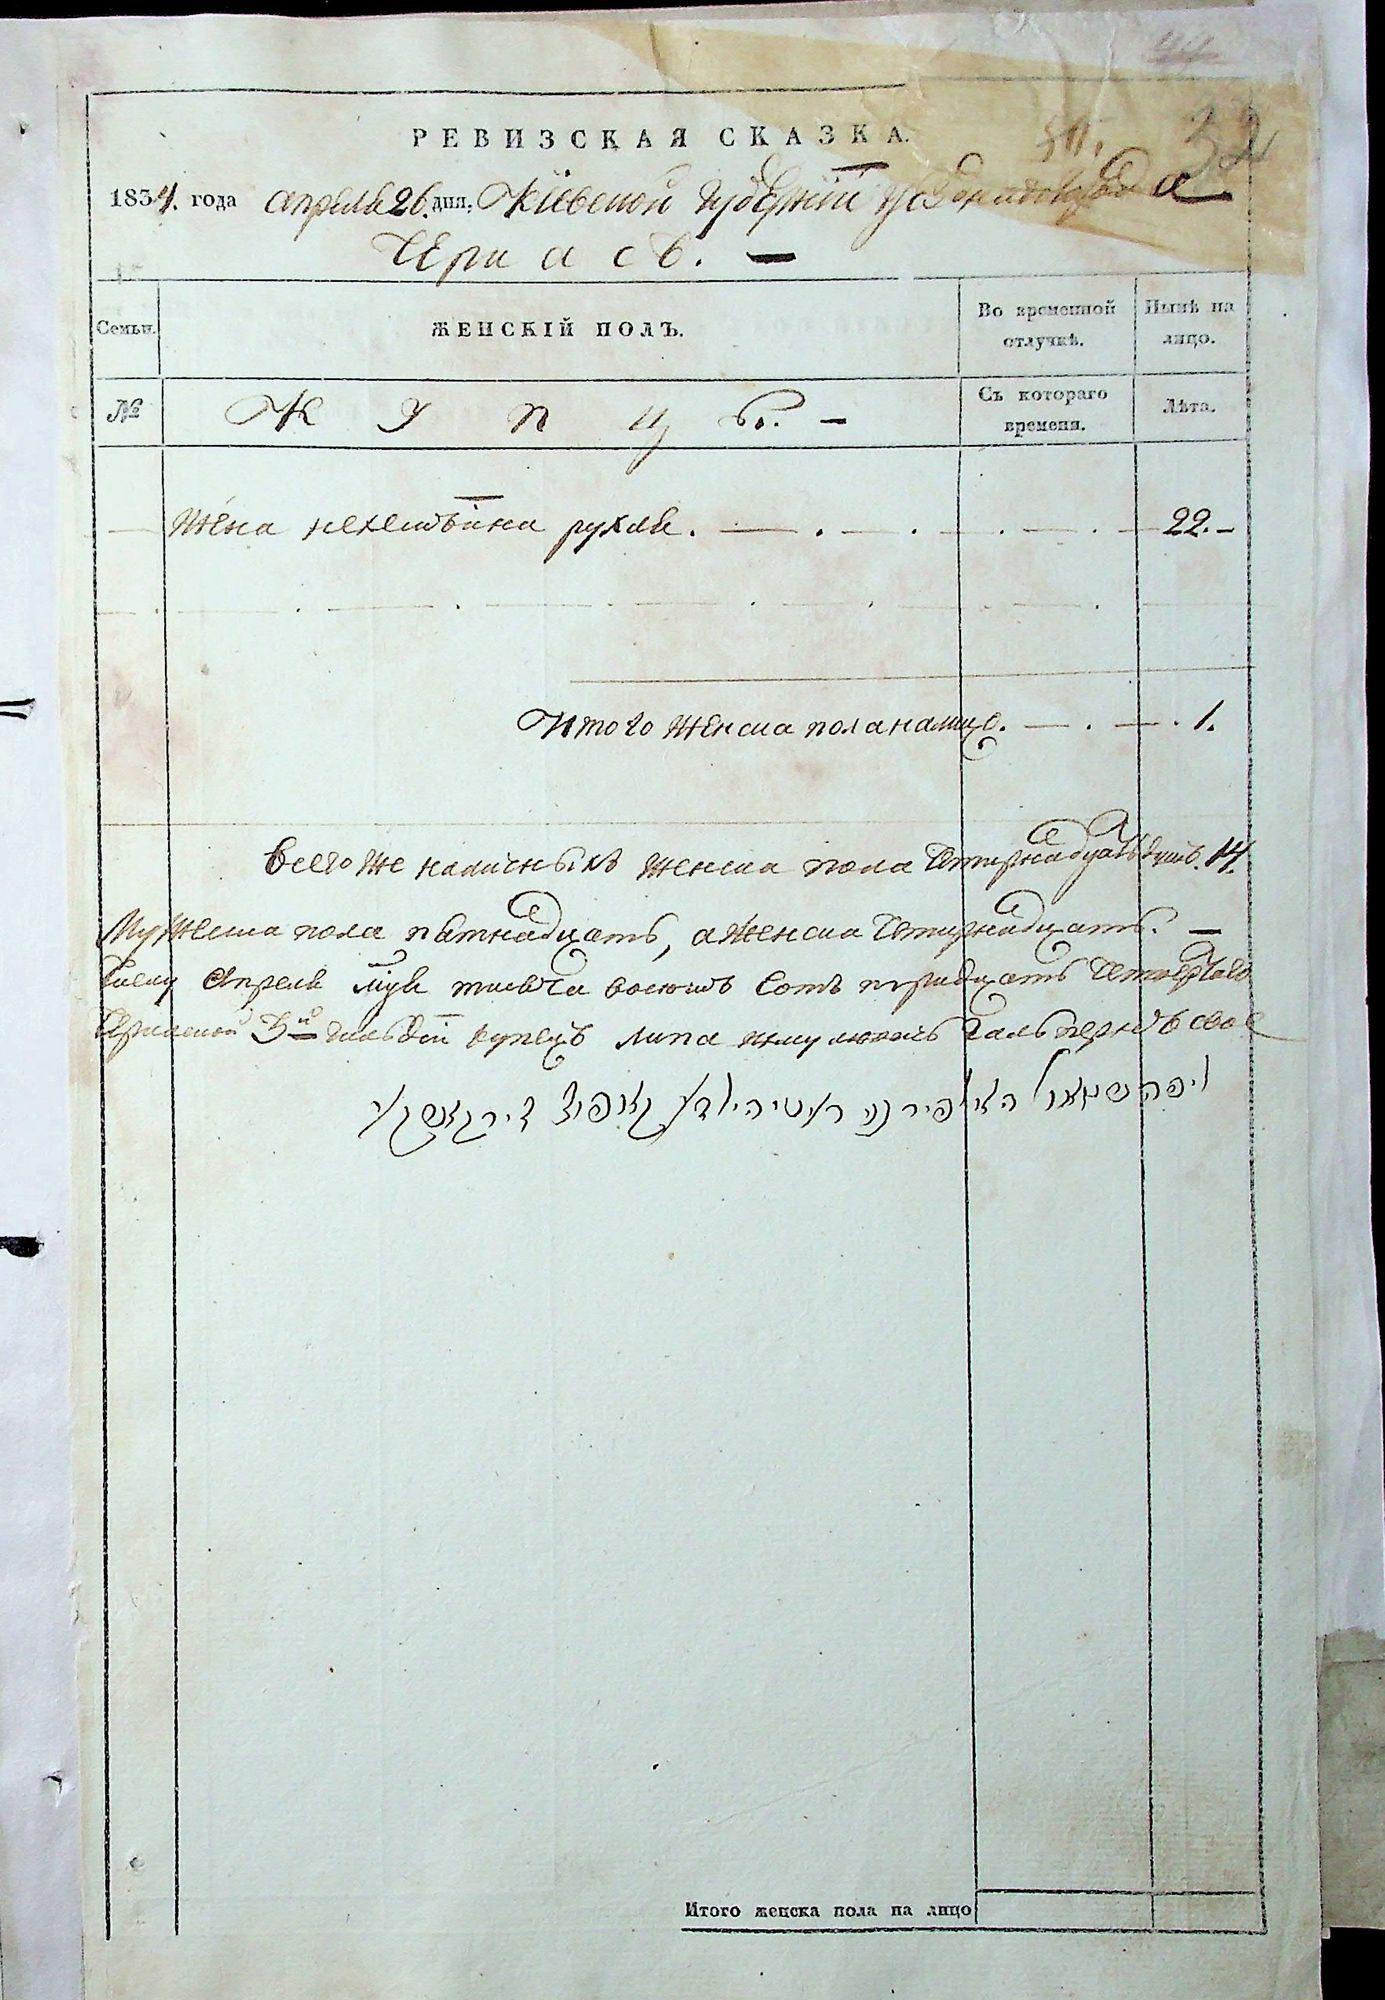 44
РЕВИЗСКАЯ СКАЗКА.
32
1834. года апреля 26. дня: Кіевской губерніи уезднаго города
Черкасъ. —
Семьи. ЖЕНСКІЙ ПОЛЪ. Во временной отлучкѣ. Нынѣ на лицо.
№ Купцы. — Съ котораго времени. Лѣта.
Жена нехемъіина рухля. 22. —
Итого женска пола налицо. 1.
Всего же наличныхъ женска пола четырнадцать душъ. 14.
Мужеска пола пятнадцать, а женска четырнадцать. —
апреля дня тысяча восемь сотъ тридцать четвертаго
Черкаской 3й гильдіи купецъ липа Гальпернъ
ליפה שמואל האלפירן
Итого женска пола на лицо